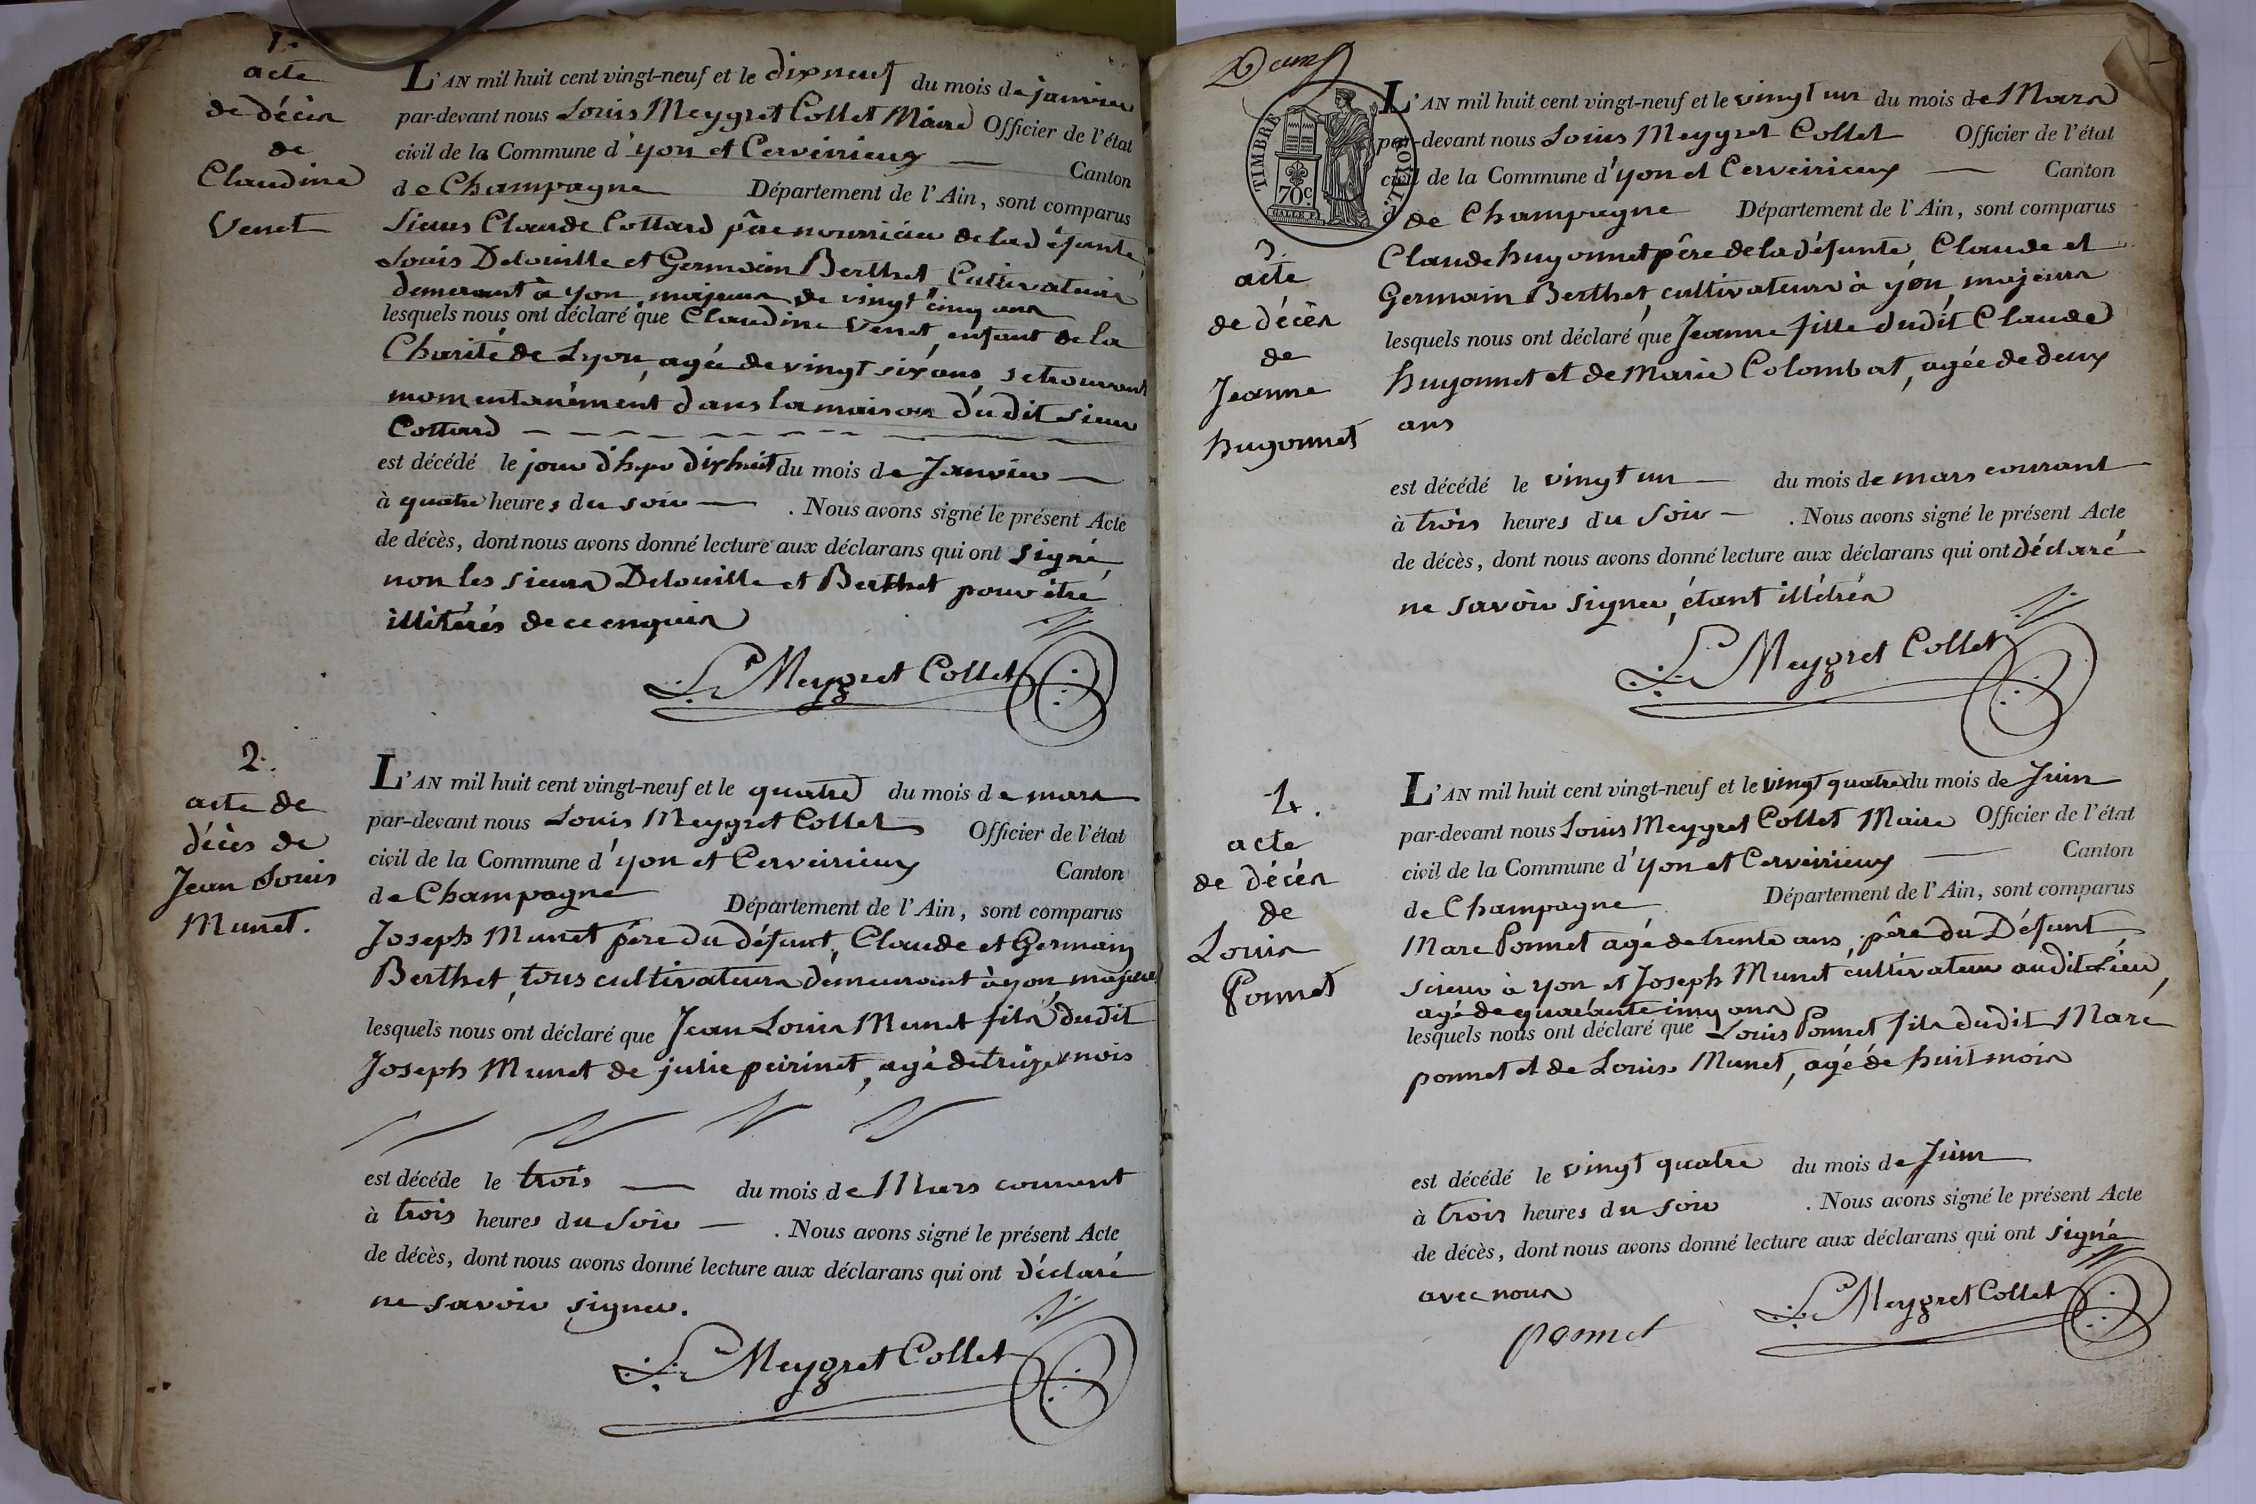 1.
acte
de décès
de
Claudine
Venet
L'AN mil huit cent vingt-neuf et le dix neuf du mois de janvier
par-devant nous Louis Meygret Collet Maire Officier de l'état
civil de la Commune d'yon et Cerveirieux Canton
de Champagne Département de l'Ain, sont comparus
Sieurs Claude Cottard père nourricier de la défunte,
Louis Delouille et Germain Berthet, Cultivateurs
demeurant à yon, majeurs de vingt cinq ans
lesquels nous ont déclaré que Claudine Venet, enfant de la
Charité de Lyon, agée de vingt six ans, se trouvant
momentanément dans la maison du dit Sieur
Cottard
est décédé le jour d'hyer dix huit du mois de Janvier
à quatre heures du soir . Nous avons signé le présent Acte
de décès, dont nous avons donné lecture aux déclarans qui ont signé,
non les sieurs Delouille et Berthet pour être
illitérés de ce enquis
Ls Meygret Collet
2.
acte de
décès de
Jean Louis
Munet.
L'AN mil huit cent vingt-neuf et le quatre du mois de mars
par-devant nous Louis Meygret Collet Officier de l'état
civil de la Commune d'yon et Cerveirieux Canton
de Champagne Département de l'Ain, sont comparus
Joseph Munet père du défunt, Claude et Germain
Berthet, tous cultivateurs demeurant à yon, majeurs
lesquels nous ont déclaré que Jean Louis Munet fils dudit
Joseph Munet de julie peirinet, agé de treize mois
est décéde le trois du mois de Mars courant
à trois heures du soir . Nous avons signé le présent Acte
de décès, dont nous avons donné lecture aux déclarans qui ont déclaré
ne savoir signer.
Ls Meygret Collet
TIMBRE ROYAL
70c
3.
acte
de décès
de
Jeanne
hugonnet
L'AN mil huit cent vingt-neuf et le vingt un du mois de Mars
par-devant nous Louis Meygret Collet Officier de l'état
civil de la Commune d'yon et Cerveirieux Canton
de Champagne Département de l'Ain, sont comparus
Claude hugonnet père de la défunte, Claude et
Germain Berthet, cultivateurs à yon, majeurs
lesquels nous ont déclaré que Jeanne fille dudit Claude
hugonnet et de Marie Colombat, agée de deux
ans
est décédé le vingt un du mois de mars courant
à trois heures du soir . Nous avons signé le présent Acte
de décès, dont nous avons donné lecture aux déclarans qui ont déclaré
ne savoir signer, étant illétrés
Ls Meygret Collet
4.
acte
de décès
de
Louis
Ponnet
L'AN mil huit cent vingt-neuf et le vingt quatre du mois de Juin
par-devant nous Louis Meygret Collet Maire Officier de l'état
civil de la Commune d'yon et Cerveirieux Canton
de Champagne Département de l'Ain, sont comparus
Marc Ponnet agé de trente ans, père du Défunt
scieur à yon et Joseph Munet cultivateur audit Lieu,
agé de quarante cinq ans
lesquels nous ont déclaré que Louis Ponnet fils dudit Marc
ponnet et de Louise Munet, agé de huit mois
est décédé le vingt quatre du mois de Juin
à trois heures du soir . Nous avons signé le présent Acte
de décès, dont nous avons donné lecture aux déclarans qui ont signé
avec nous
ponnet Ls Meygret Collet